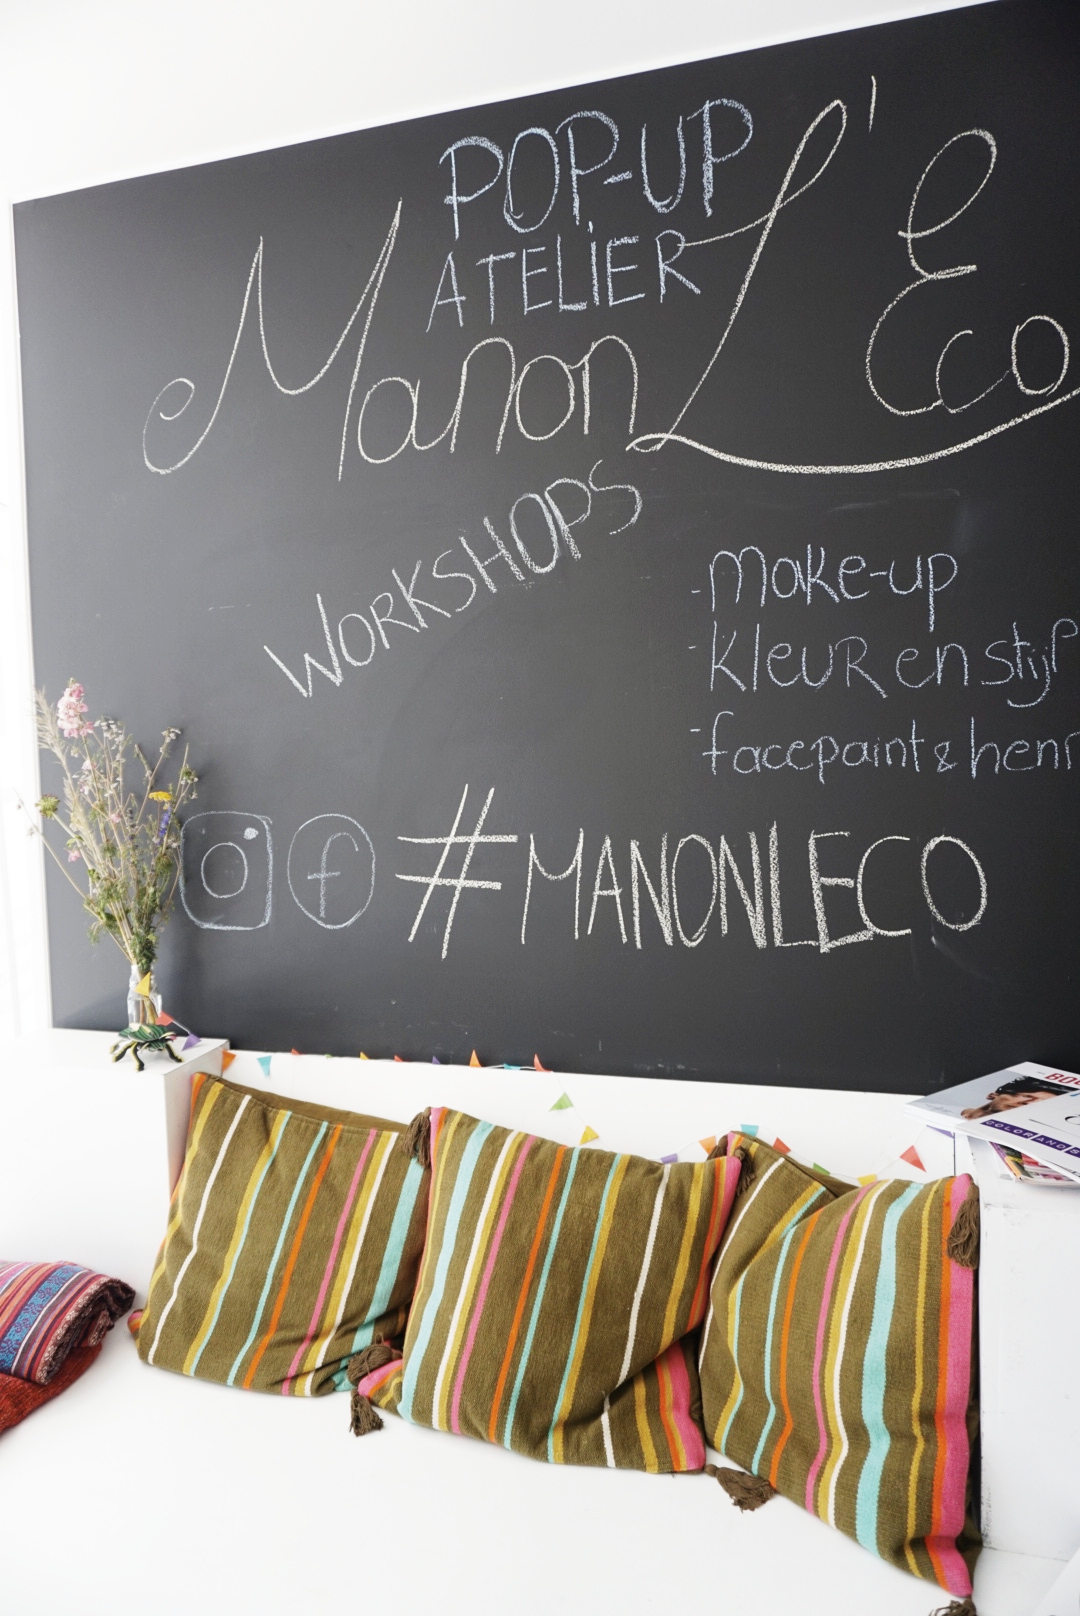 POP-UP
ATELIER
Manon L'Eco
WORKSHOPS
- make-up
- kleur en stijl
- facepaint & henn
f #MANONLECO
COLOR AND